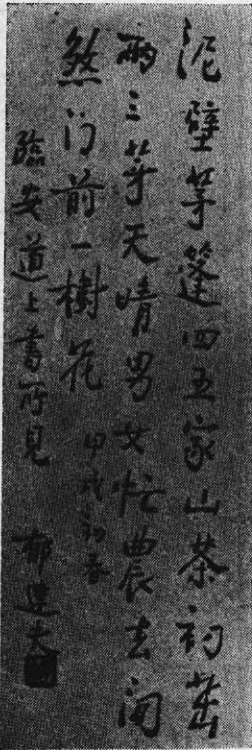 泥壁茅篷四五家山茶初茁
兩三芽天晴男女忙農去閒
煞门前一樹花 甲戌初春
臨安道上書所見 郁達夫